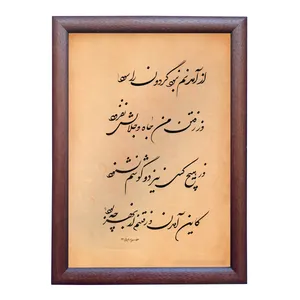 از آمدنم نبود گردون را سود
وز رفتن من جاه و جلالش نفزود
وز هیچ کسی نیز دو گوشم نشنود
کاین آمدن و رفتنم از بهر چه بود